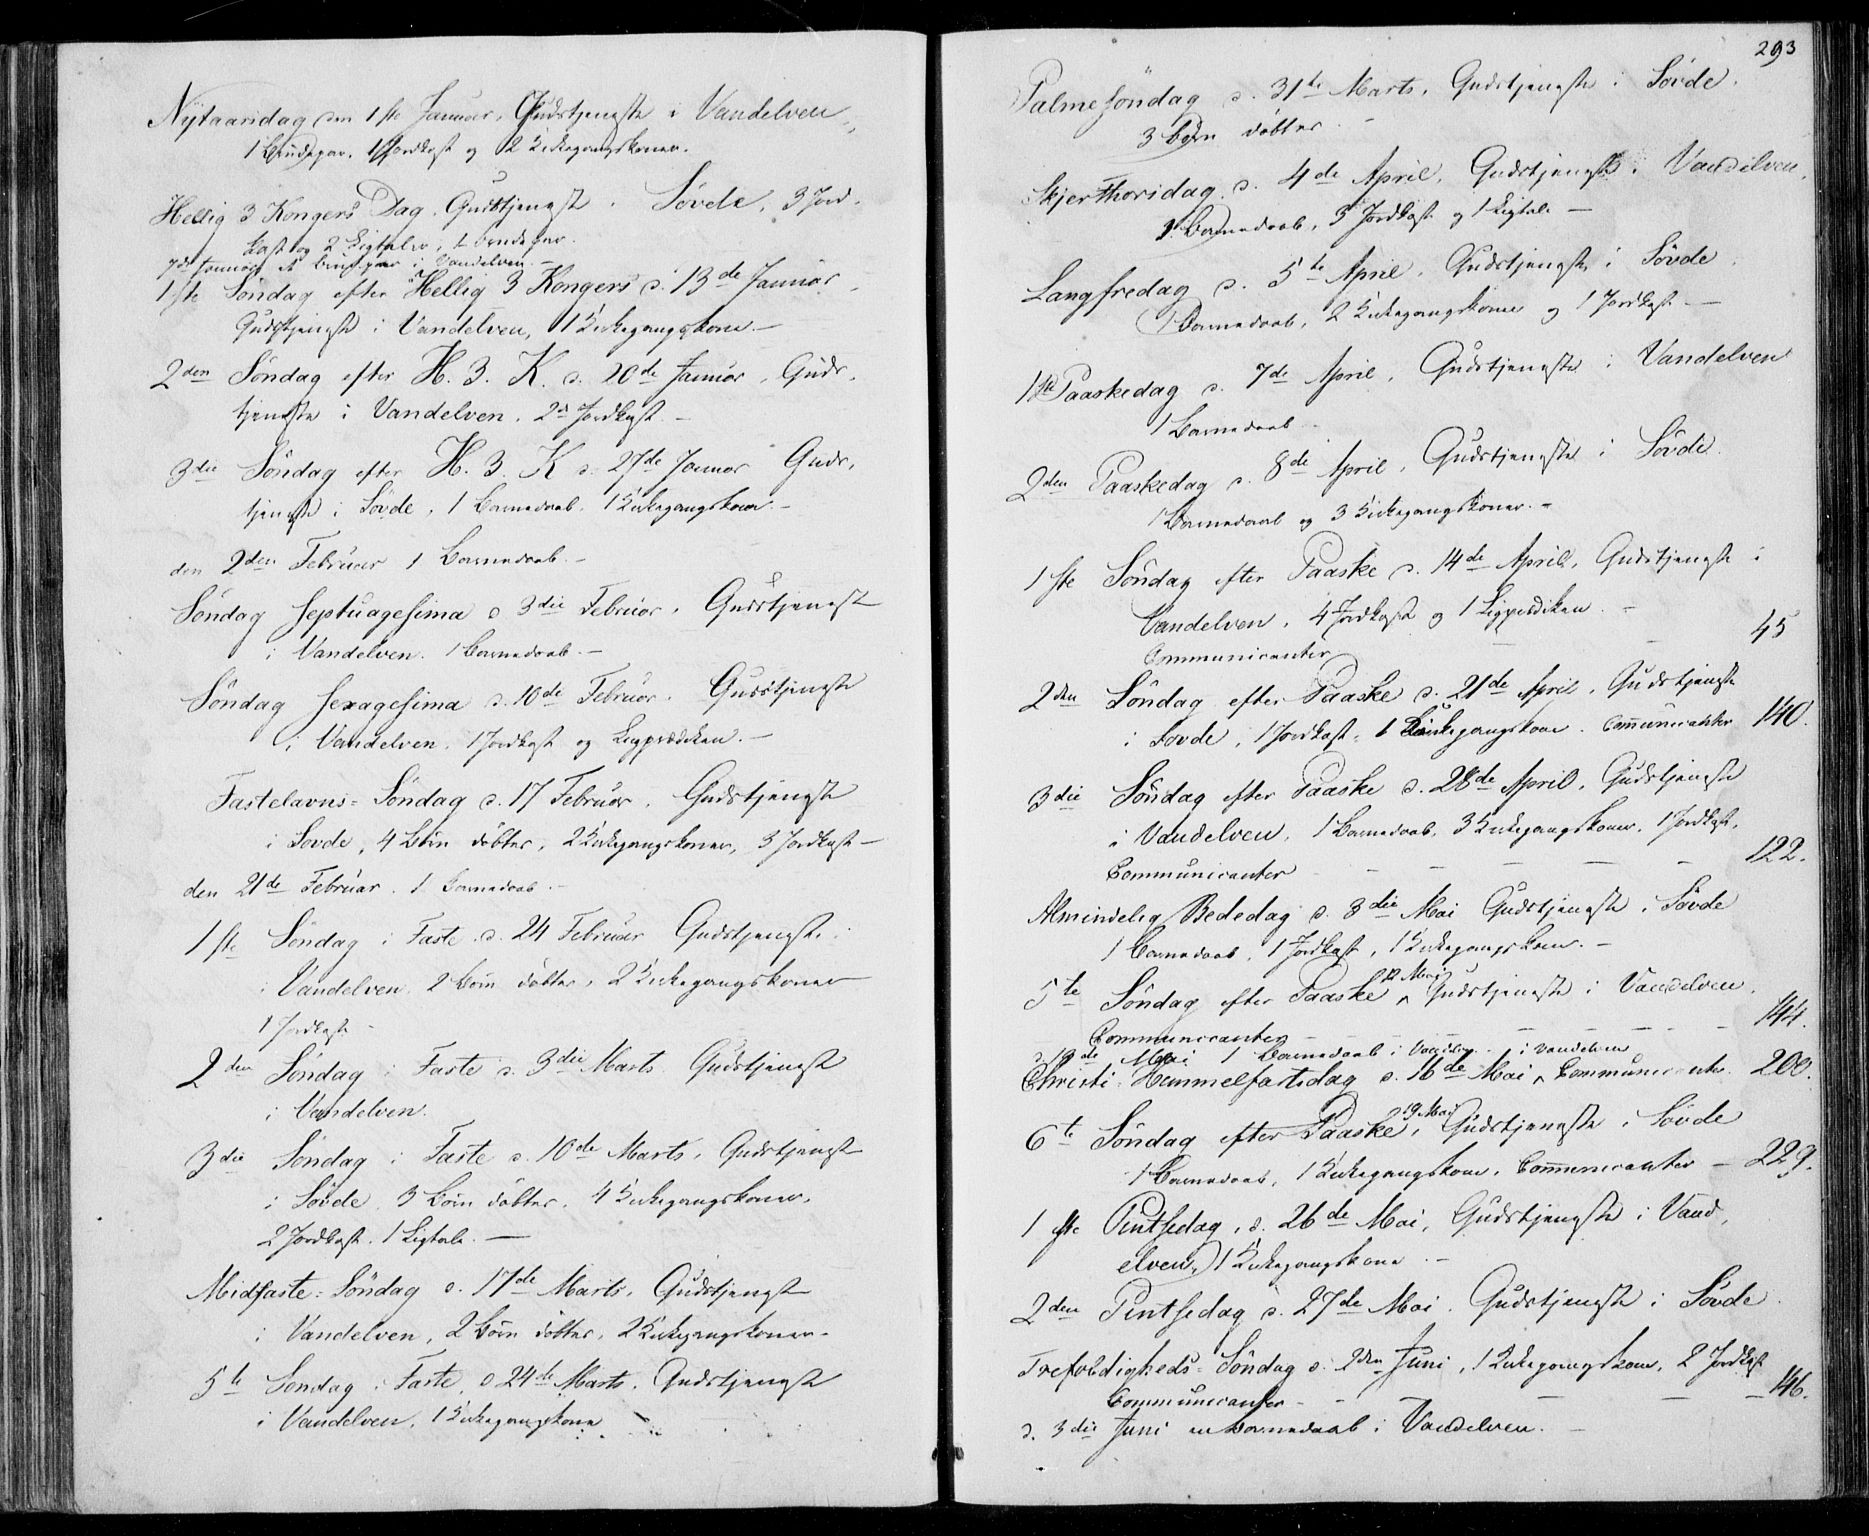 Nytaarsdag den 1ste Januar, Gudstjeneste i Vandelven
1 Brudepar, 1 Jordkast og 2 Kirkegangskoner.
Hellig 3 Kongers Dag. Gudstjeneste i Søvde, 3 Jord-
kast og 2 Ligtaler, 1 Brudepar.
7de Januar et Brudepar i Vandelven. —
1ste Søndag efter Hellig 3 Kongers d. 13de Januar
Gudstjeneste i Vandelven, 1 Kirkegangskone. —
2den Søndag efter H. 3. K. d. 20de Januar, Guds-
tjeneste i Vandelven. 2 Jordkast. —
3die Søndag efter H. 3. K d. 27de Januar Guds-
tjeneste i Søvde, 1 Barnedaab. 1 Kirkegangskone. —
den 2den Februar 1 Barnedaab. —
Søndag Septuagesima d 3die Februar. Gudstjeneste
i Vandelven. 1 Barnedaab. —
Søndag Sexagesima d. 10de Februar. Gudstjeneste
i Vandelven. 1 Jordkast og Ligprædiken. —
Fastelavns-Søndag d. 17 Februar. Gudstjeneste
i Sovde, 4 Børn døbte, 2 Kirkegangskoner, 3 Jordkast —
den 21de Februar. 1 Barnedaab. —
1ste Søndag i Faste d. 24 Februar Gudstjeneste i
Vandelven. 2 Børn døbte, 2 Kirkegangskoner
1 Jordkast —
2den Søndag i Faste d. 3die Marts Gudstjeneste
i Vandelven.
3die Søndag i Faste d. 10de Marts, Gudstjeneste
i Søvde, 3 Børn døbte, 4 Kirkegangskoner,
2 Jordkast. 1 Ligtale. —
Midfaste-Søndag d. 17de Marts, Gudstjeneste
i Vandelven, 2 Børn døbte, 2 Kirkegangskoner.
5te Søndag i Faste, d 24de Marts. Gudstjeneste
i Vandelven, 1 Kirkegangskone
293
Palmesøndag d. 31te Marts, Gudstjeneste i Søvde.
3 Børn døbte. —
Skjerthorsdag d. 4de April, Gudstjeneste i Vandelven,
Barnedaab, 3 Jordkast og 1 Ligtale —
Langfredag d. 5te April, Gudstjeneste i Søvde
1 Barnedaab, 2 Kirkegangskoner og 1 Jordkast. —
1ste Paaskedag d. 7de April, Gudstjeneste i Vandelven
1 Barnedaab —
2den Paaskedag d. 8de April, Gudstjeneste i Søvde
1 Barnedaab og 3 Kirkegangskoner. —
1ste Søndag efter Paaske d. 14de April, Gudstjeneste i
Vandelven, 4 Jordkast og 1 Ligprædiken. —
Communicanter — 45
2den Søndag efter Paaske d. 21de April, Gudstjeneste
i Sovde, 1 Jordkast, 1 Kirkegangskone. Communicanter 140.
3die Søndag efter Paaske d. 28de April, Gudstjeneste
i Vandelven, 1 Barnedaab, 3 Kirkegangskoner, 1 Jordkast,
Communicanter — — — — — 122.
Almindelig Bededag d. 3die Mai Gudstjeneste i Søvde
1 Barnedaab, 1 Jordkast, 1 Kirkegangskone. —
5te Søndag efter Paaske 12 Mai Gudstjeneste i Vandelven.
Communicanter — — — — — 144.
d. 13de Mai 1 Barnedaab i Vandelven. i Vandelven
Christi Himmelfartsdag d. 16de Mai, Communicanter 200.
6te Søndag efter Paaske, 19 Mai Gudstjeneste i Søvde
1 Barnedaab, 1 Kirkegangskone, Communicanter — 229.
1ste Pintsedag, d. 26de Mai, Gudstjeneste i Vand-
elven, 1 Kirkegangskone. —
2den Pintsedag d. 27de Mai. Gudstjeneste i Søvde
Trefoldigheds-Søndag d. 2den Juni, 1 Kirkegangskone, 2 Jordkast
Communicanter — — — — 146.
d. 3die Juni en Barnedaab i Vandelven. —